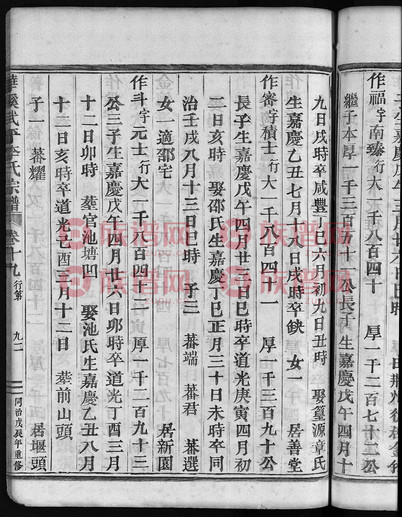 作福字南臻行大一千八百四十 厚一千二百七十三公
繼子本厚一千三百五十一公長子生嘉慶戊午四月十
九日戌時卒咸豐丁巳六月初九日丑時 娶篁源章氏
生嘉慶乙丑七月十九日戌時卒缺 女一 居善堂
作審字積士行大一千八百四十一 厚一千三百九十公
長子生嘉慶戊午四月廿三日巳時卒道光庚寅四月初
二日亥時 娶邵氏生嘉慶丁巳正月三十日未時卒同
治壬戌八月十三日巳時 子三 蕃端 蕃君 蕃選
女一適邵宅 居新園
作斗字元士行大一千八百四十二 厚一千二百九十三
公三子生嘉慶戊午四月廿六日卯時卒道光丁酉三月
十二日卯時 葬官池塘凹 娶池氏生嘉慶乙丑八月
十二日亥時卒道光己酉三月十二日 葬前山頭
子一 蕃耀 居堰頭
華溪武平李氏宗譜 卷十九 行第 九二 同治戊辰年重修
族谱网
族谱网
族谱网
族谱网